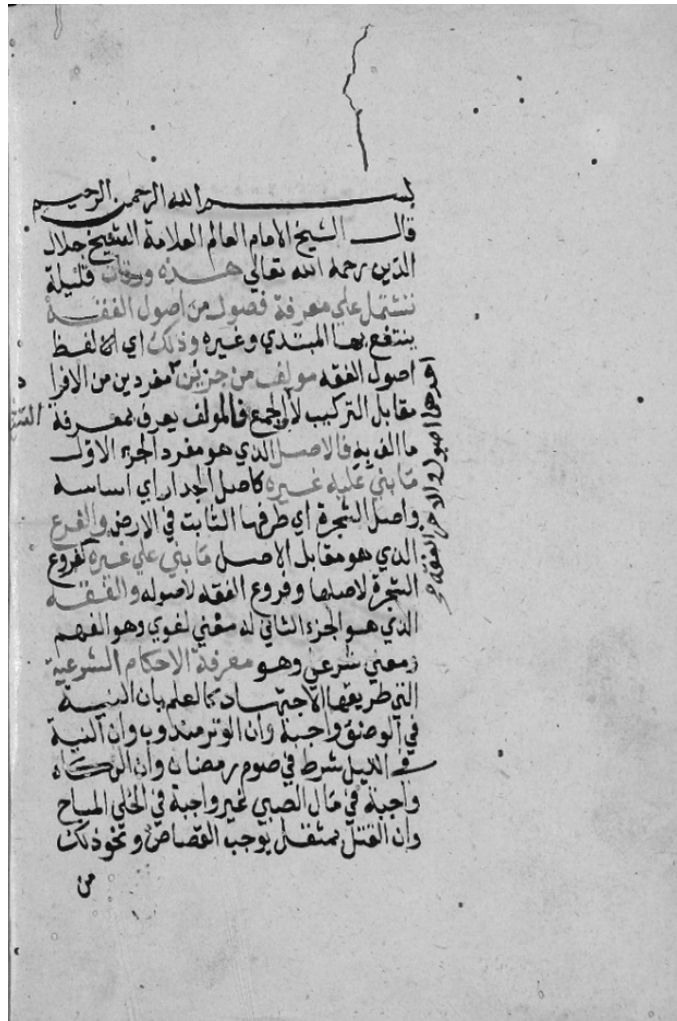 بسم الله الرحمن الرحيم
قال الشيخ الامام العالم العلامة الشيخ جلال
الدين رحمه الله تعالي هذه ورقات قليلة
تشتمل علي معرفة فصول من اصول الفقه
ينتفع بها المبتدي وغيره وذلك اي لفظ
اصول الفقه مولف من جزئين مفردين من الافرا
د
مقابل التركيب لا الجمع فالمولف يعرف بمعرفة
ما الف به فالاصل الذي هو مفرد الجزء الاول
ما بني عليه غيره كاصل الجدار اي اساسه
واصل الشجرة اي طرفها الثابت في الارض والفرع
الذي هو مقابل الاصل ما بني علي غيره كفروع
الشجرة لاصلها وفروع الفقه لاصوله والفقه
الذي هو الجزء الثاني له معني لغوي وهو الفهم
ومعني شرعي وهو معرفة الاحكام الشرعية
التي طريقها الاجتهاد كالعلم بان النية
في الوضو واجبة وان الوتر مندوب وان النية
في الليل شرط في صوم رمضان وان الزكاه
واجبة في مال الصبي غير واجبة في الحلي المباح
وان القتل بمثقل يوجب القصاص ونحو ذلك
من
احدهما اصول والاخر الفقه